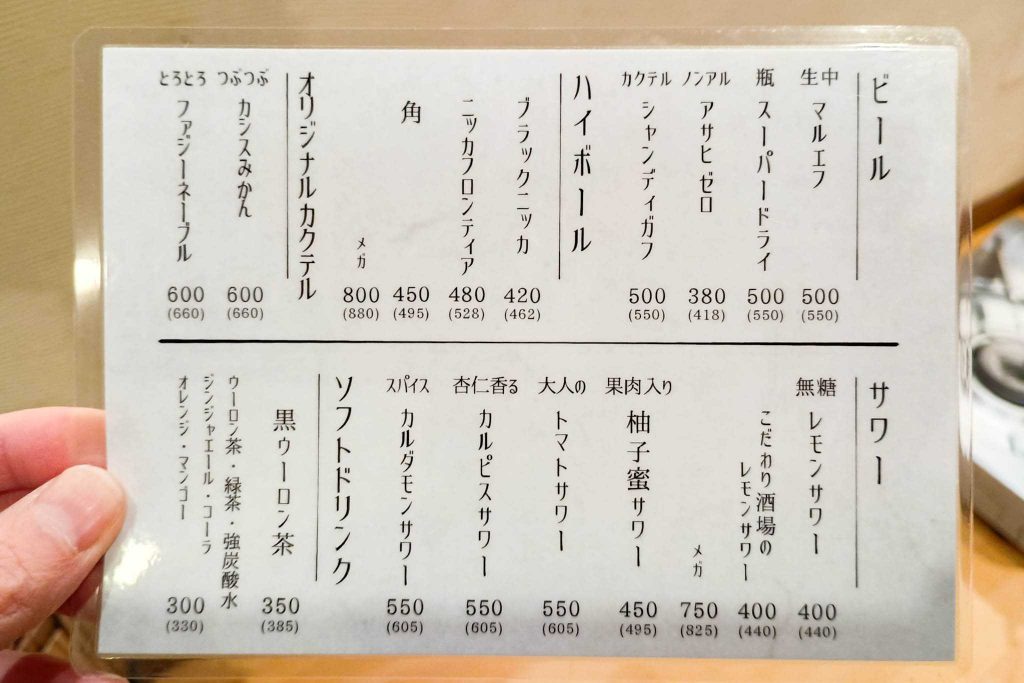 ビール
生中
マルエフ
500
(550)
瓶
スーパードライ
500
(550)
ノンアル
アサヒゼロ
380
(418)
カクテル
シャンディガフ
500
(550)
ハイボール
ブラックニッカ
420
(462)
ニッカフロンティア
480
(528)
角
450
(495)
メガ
800
(880)
オリジナルカクテル
つぶつぶ
カシスみかん
600
(660)
とろとろ
ファジーネーブル
600
(660)
サワー
無糖
レモンサワー
400
(440)
こだわり酒場の
レモンサワー
400
(440)
メガ
750
(825)
果肉入り
柚子蜜サワー
450
(495)
大人の
トマトサワー
550
(605)
杏仁香る
カルピスサワー
550
(605)
スパイス
カルダモンサワー
550
(605)
ソフトドリンク
黒ウーロン茶
350
(385)
ウーロン茶・緑茶・強炭酸水
ジンジャエール・コーラ
オレンジ・マンゴー
300
(330)